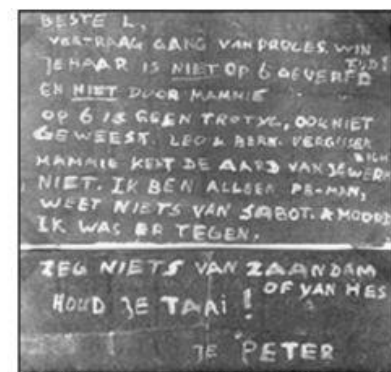 BESTE L.
VERTRAAG GANG VAN PROCES. WIN TIJD!
JE HAAR IS NIET OP 6 GEVERFD
EN NIET DOOR MAMMIE
OP 6 IS GEEN TROTYL, OOK NIET
GEWEEST. LEO & BERN. VERGISSEN ZICH
MAMMIE KENT DE AARD VAN JE WERK
NIET. IK BEN ALLEEN PR-MAN,
WEET NIETS VAN SABOT. & MOORD
IK WAS ER TEGEN.
ZEG NIETS VAN ZAANDAM
OF VAN HES
HOUD JE TAAI!
JE PETER